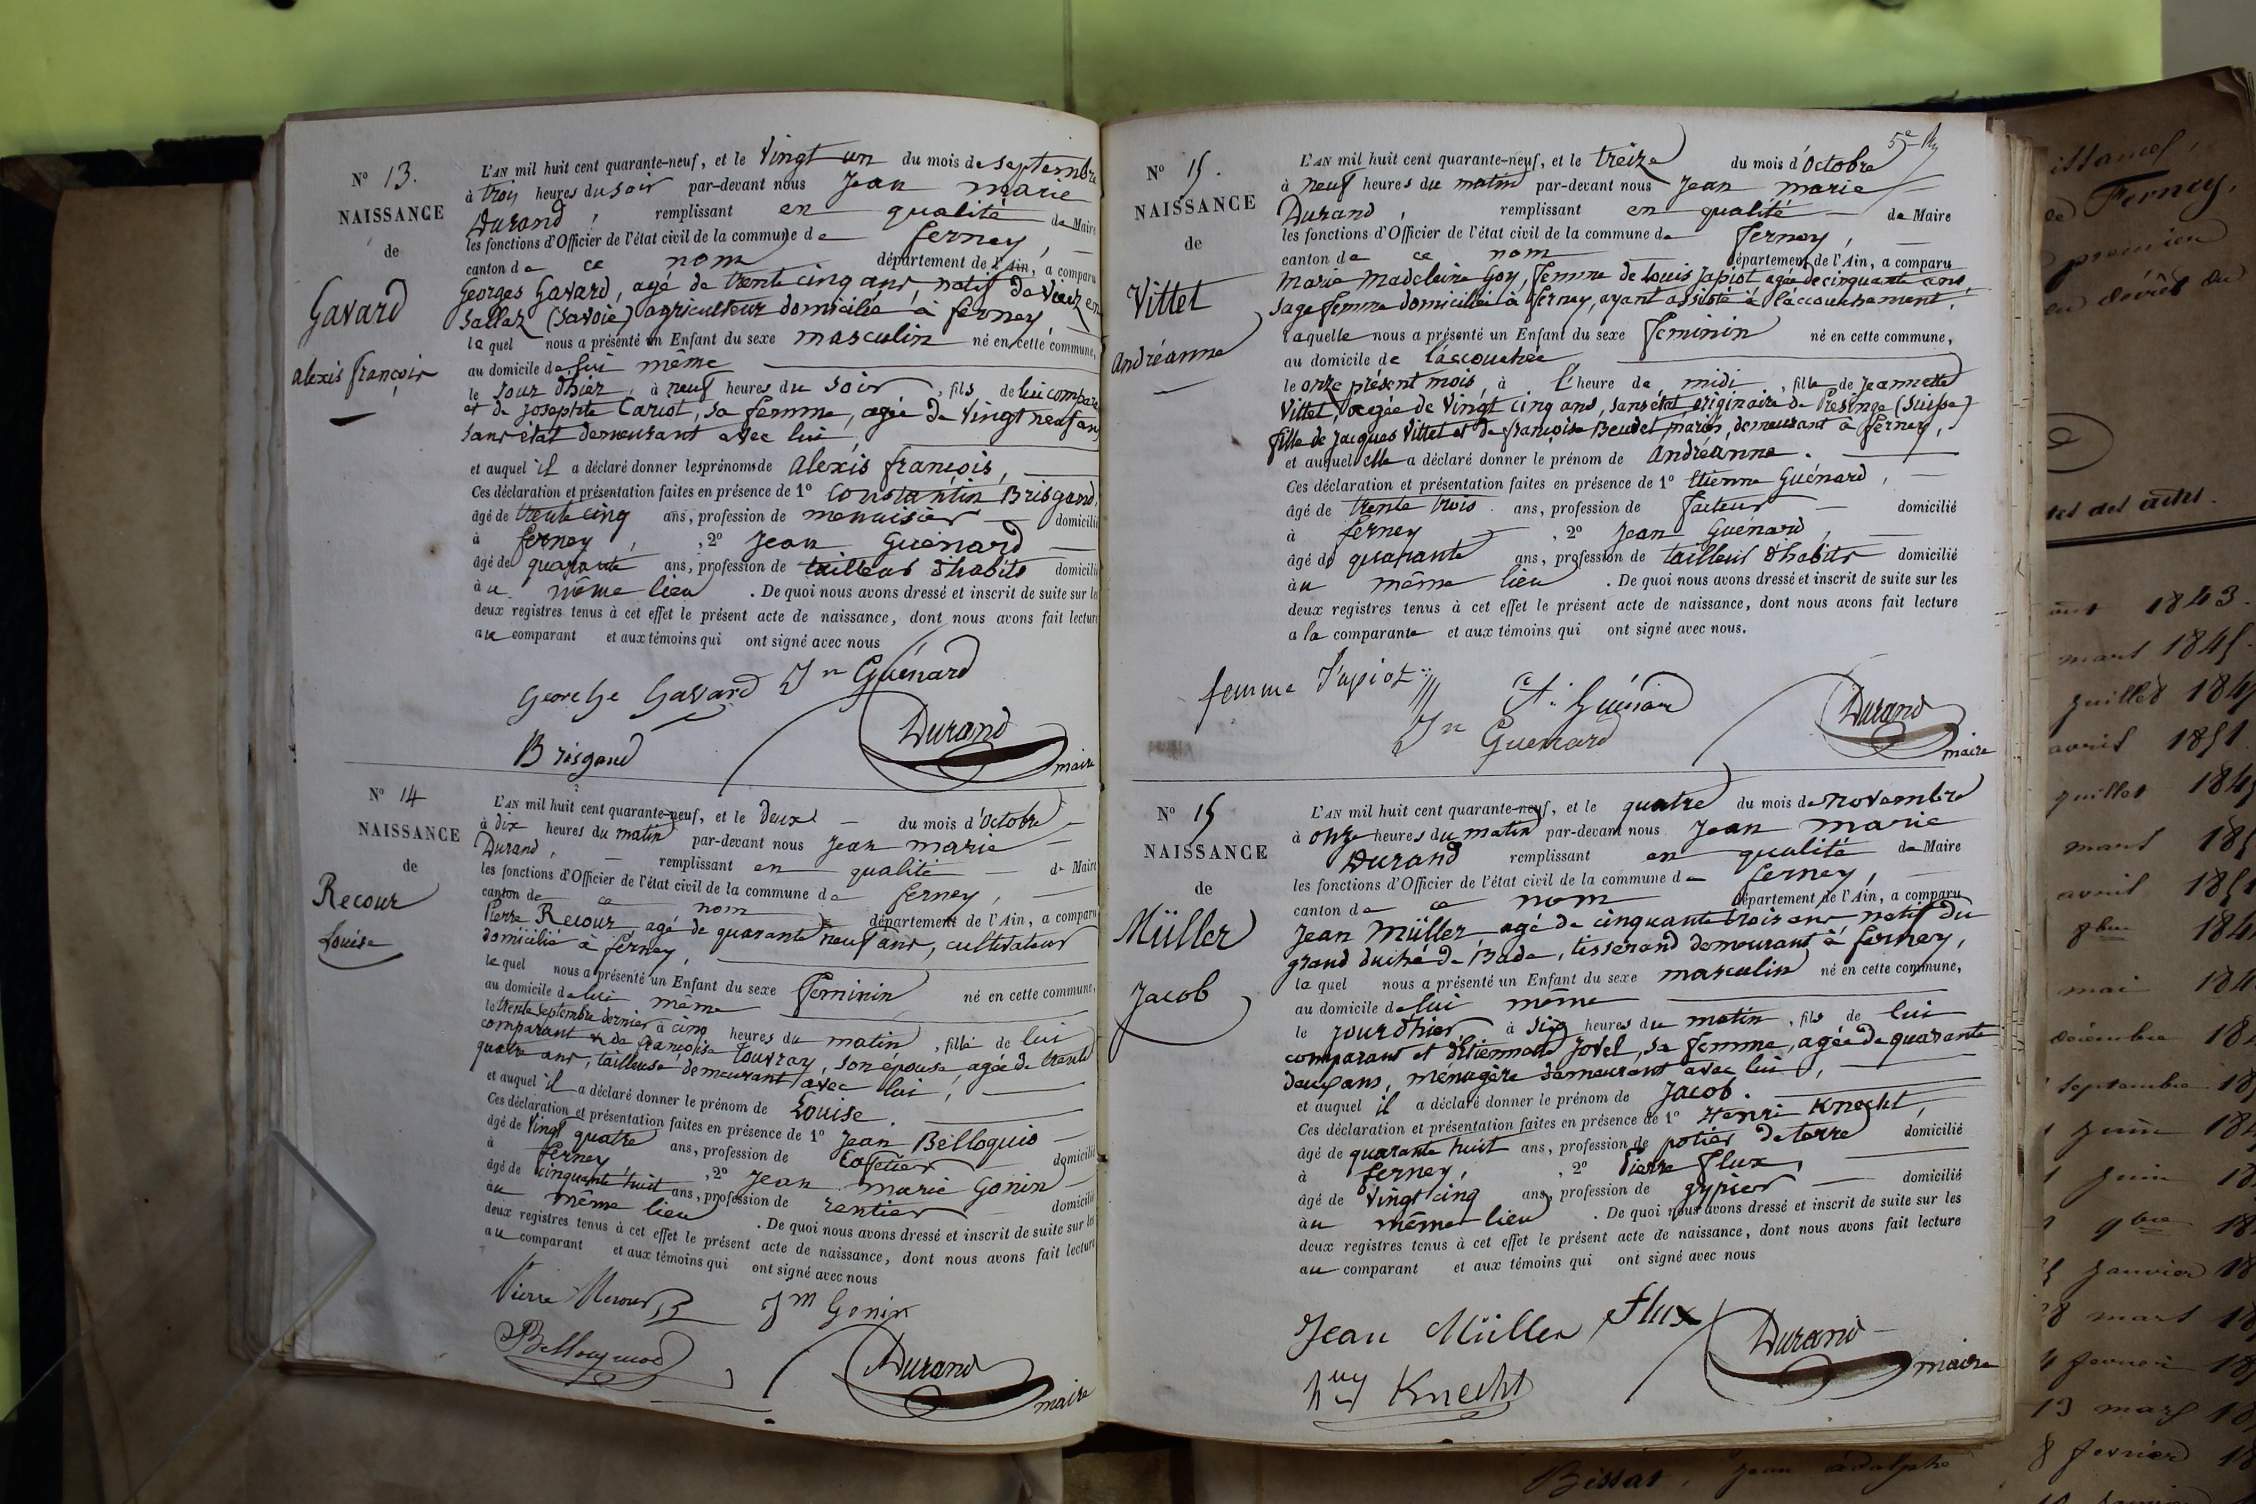 N° 13.
NAISSANCE
de
Gavard
alexis françois
L'AN mil huit cent quarante-neuf, et le vingt un du mois de septembre
à trois heures du soir par-devant nous Jean marie
Durand, remplissant en qualité de Maire
les fonctions d'Officier de l'état civil de la commune de ferney,
canton de ce nom département de l'Ain, a comparu
Georges Gavard, agé de trente cinq ans, natif de Vieux en
Sallaz (Savoie) agriculteur domicilié à ferney,
lequel nous a présenté un Enfant du sexe masculin né en cette commune,
au domicile de lui même
le jour d'hier, à neuf heures du soir, fils de lui comparant
et de josephte Cariot, sa femme, agée de vingt neuf ans
sans état demeurant avec lui,
et auquel il a déclaré donner les prénoms de alexis françois,
Ces déclaration et présentation faites en présence de 1° Constantin Brisgand,
âgé de trente cinq ans, profession de menuisier domicilié
à ferney, , 2° Jean Guénard
âgé de quarante ans, profession de tailleur d'habits domicilié
au même lieu . De quoi nous avons dressé et inscrit de suite sur les
deux registres tenus à cet effet le présent acte de naissance, dont nous avons fait lecture
au comparant et aux témoins qui ont signé avec nous
George Gavard Jn Guénard
Brisgand Durand maire
N° 14
NAISSANCE
de
Recour
Louise
L'AN mil huit cent quarante-neuf, et le deux du mois d'Octobre
à dix heures du matin par-devant nous Jean marie
Durand, remplissant en qualité de Maire
les fonctions d'Officier de l'état civil de la commune de ferney,
canton de ce nom département de l'Ain, a comparu
Pierre Recour, agé de quarante neuf ans, cultivateur
domicilié à ferney,
lequel nous a présenté un Enfant du sexe feminin né en cette commune,
au domicile de lui même
le trente septembre dernier à cinq heures du matin, fille de lui
comparant & de françoise Touvray, son épouse agée de trente
quatre ans, tailleuse demeurant avec lui,
et auquel il a déclaré donner le prénom de Louise.
Ces déclaration et présentation faites en présence de 1° Jean Belloquio
âgé de vingt quatre ans, profession de Cafetier domicilié
à ferney , 2° Jean marie Gonin
âgé de cinquante huit ans, profession de rentier domicilié
au même lieu . De quoi nous avons dressé et inscrit de suite sur les
deux registres tenus à cet effet le présent acte de naissance, dont nous avons fait lecture
au comparant et aux témoins qui ont signé avec nous
Pierre Recour Jm Gonin
Durand maire
N° 15.
NAISSANCE
de
Vittet
andréanne
L'AN mil huit cent quarante-neuf, et le treize du mois d'Octobre
à neuf heures du matin par-devant nous Jean marie
Durand, remplissant en qualité de Maire
les fonctions d'Officier de l'état civil de la commune de ferney,
canton de ce nom département de l'Ain, a comparu
marie madeleine Goy, femme de louis Japiot agée de cinquante ans,
sage femme domiciliée à ferney, ayant assisté à l'accouchement,
laquelle nous a présenté un Enfant du sexe feminin né en cette commune,
au domicile de l'accouchée
le onze présent mois, à l'heure de midi, fille de jeannette
Vittet, agée de vingt cinq ans, sans état originaire de Presinge (Suisse)
fille de jacques Vittet et de françoise Beudet mariés, demeurant à ferney,
et auquel elle a déclaré donner le prénom de andréanne.
Ces déclaration et présentation faites en présence de 1° Etienne Guénard,
âgé de trente trois ans, profession de facteur domicilié
à ferney , 2° Jean Guénard,
âgé de quarante ans, profession de tailleur d'habits domicilié
au même lieu . De quoi nous avons dressé et inscrit de suite sur les
deux registres tenus à cet effet le présent acte de naissance, dont nous avons fait lecture
a la comparante et aux témoins qui ont signé avec nous.
femme Japiot
Guénard
Jn Guénard Durand maire
N° 15
NAISSANCE
de
Müller
Jacob
L'AN mil huit cent quarante-neuf, et le quatre du mois de novembre
à onze heures du matin par-devant nous Jean marie
Durand remplissant en qualité de Maire
les fonctions d'Officier de l'état civil de la commune de ferney,
canton de ce nom département de l'Ain, a comparu
Jean Müller, agé de cinquante trois ans natif du
grand duché de Bade, tisserand demeurant à ferney,
lequel nous a présenté un Enfant du sexe masculin né en cette commune,
au domicile de lui même
le jour d'hier à six heures du matin, fils de lui
comparant et d'Etiennette Jovel, sa femme, agée de quarante
deux ans, ménagère demeurant avec lui,
et auquel il a déclaré donner le prénom de Jacob.
Ces déclaration et présentation faites en présence de 1° Henri Knecht,
âgé de quarante huit ans, profession de potier de terre domicilié
à ferney, , 2° Pierre Flux,
âgé de vingt cinq ans, profession de gypier domicilié
au même lieu . De quoi nous avons dressé et inscrit de suite sur les
deux registres tenus à cet effet le présent acte de naissance, dont nous avons fait lecture
au comparant et aux témoins qui ont signé avec nous
Jean Müller Flux
Knecht Durand maire
Ferney,
premier
tes des actes.
1843.
mars 1845.
juillet 184
avril 1851
juillet 184
mars 185
avril 185
8bre 184
mai 184
décembre 18
septembre 18
juin 18
juin 18
9bre 18
janvier 18
8 mars 18
fevrier 18
13 mars 18
8 fevrier 18
Bissat, jean adolphe